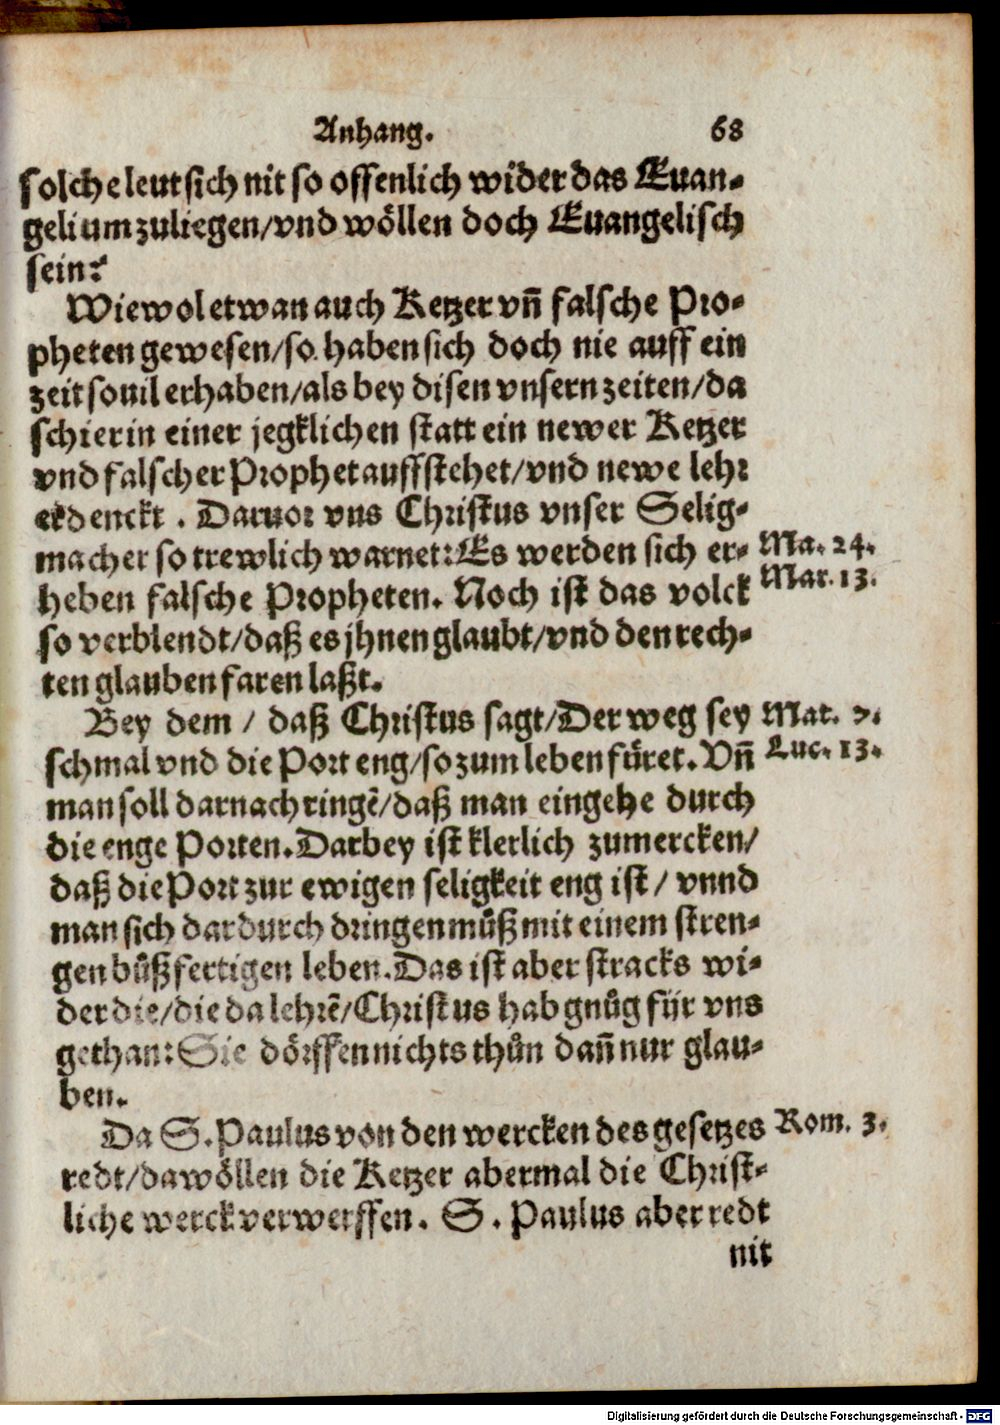 Anhang. 68
solche leut sich nit so offenlich wider das Euan-
gelium zuliegen/vnd wöllen doch Euangelisch
sein?
Wiewol etwan auch Ketzer vñ falsche Pro-
pheten gewesen/so haben sich doch nie auff ein
zeit souil erhaben/als bey disen vnsern zeiten/da
schier in einer jegklichen statt ein newer Ketzer
vnd falscher Prophet auffstehet/vnd newe lehr
erdenckt. Daruor vns Christus vnser Selig-
macher so trewlich warnet: Es werden sich er- Ma. 24.
heben falsche Propheten. Noch ist das volck Mar. 13.
so verblendt/daß es jhnen glaubt/vnd den rech-
ten glauben faren laßt.
Bey dem / daß Christus sagt/Der weg sey Mat. 7.
schmal vnd die Port eng/so zum leben füret. Vñ Luc. 13.
man soll darnach ringẽ/daß man eingehe durch
die enge Porten. Darbey ist klerlich zumercken/
daß die Port zur ewigen seligkeit eng ist/ vnnd
man sich dardurch dringen můß mit einem stren-
gen bůßfertigen leben. Das ist aber stracks wi-
der die/die da lehrẽ/Christus hab gnůg für vns
gethan: Sie dörffen nichts thůn dañ nur glau-
ben.
Da S. Paulus von den wercken des gesetzes Rom. 3.
redt/da wöllen die Ketzer abermal die Christ-
liche werck verwerffen. S. Paulus aber redt
nit
Digitalisierung gefördert durch die Deutsche Forschungsgemeinschaft - DFG